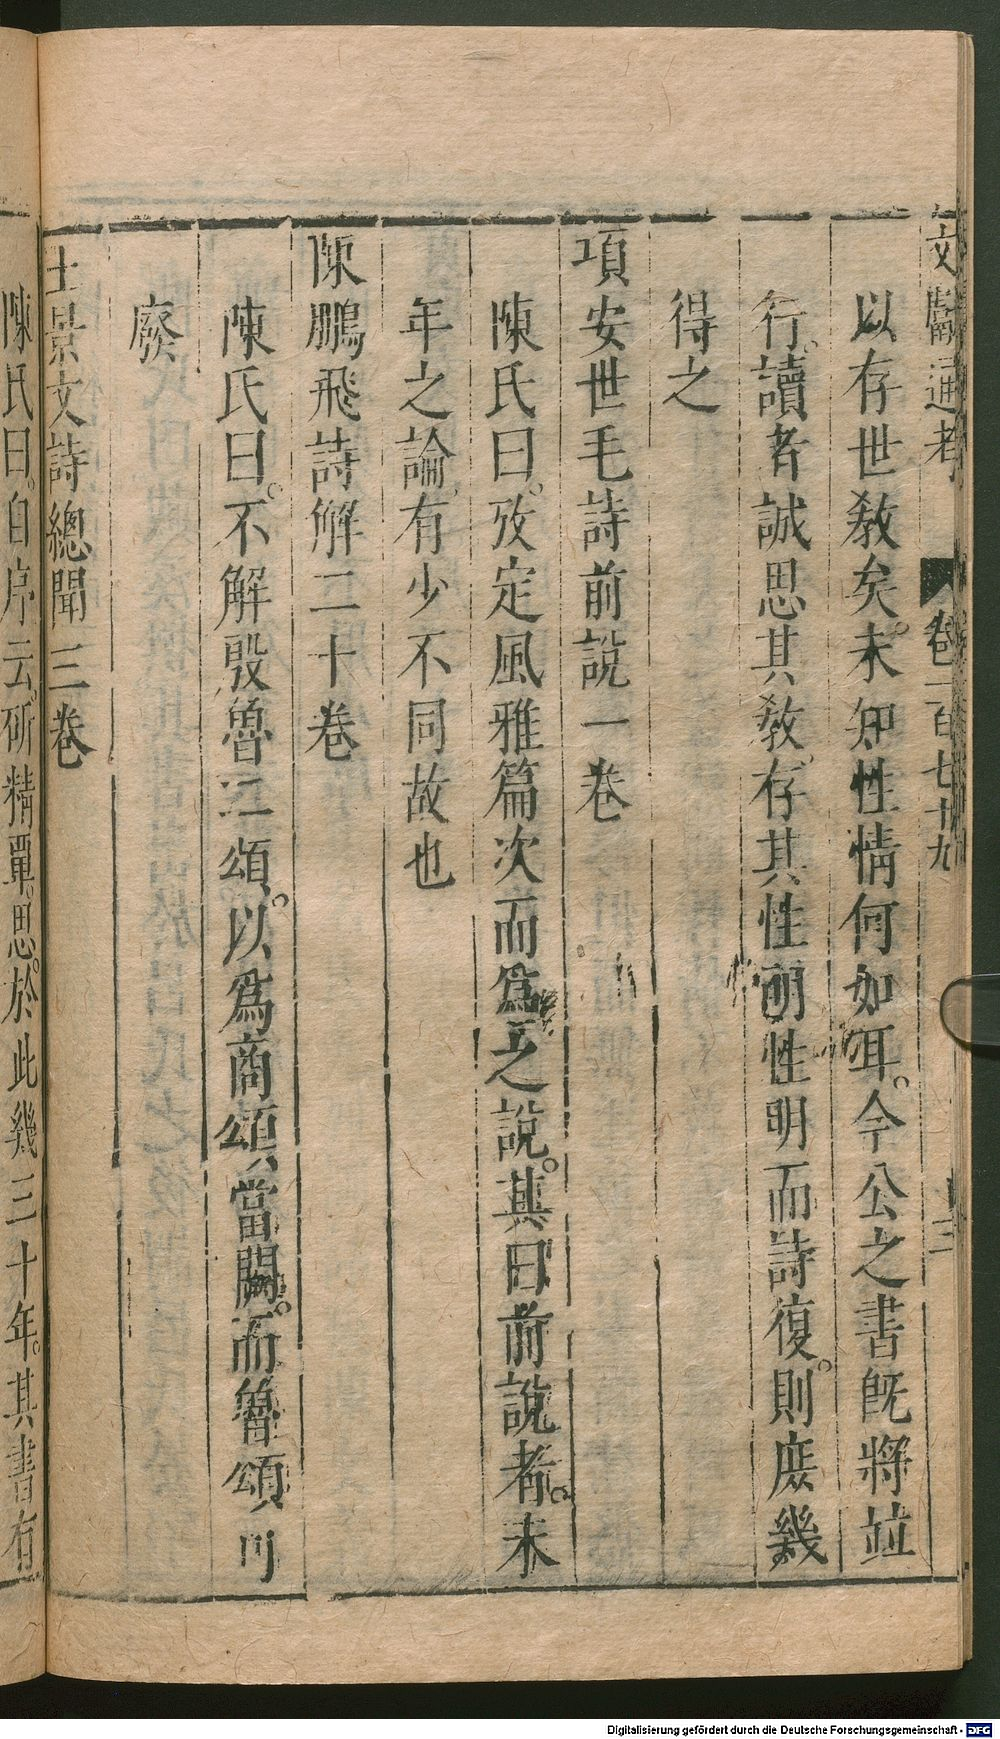 文獻通考 卷一百七十九 二
以存世敎矣。未知性情何如耳。今公之書旣將竝
行。讀者誠思其敎。存其性。明性明而詩復。則庶幾
得之
項安世毛詩前說一卷
陳氏曰。攷定風雅篇次而爲之說。其曰前說者。末
年之論有少不同故也
陳鵬飛詩解二十卷
陳氏曰。不解殷魯二頌。以爲商頌當闕。而魯頌可
廢
王景文詩總聞三卷
陳氏曰。自序云。硏精覃思。於此幾三十年。其書有
Digitalisierung gefördert durch die Deutsche Forschungsgemeinschaft - DFG